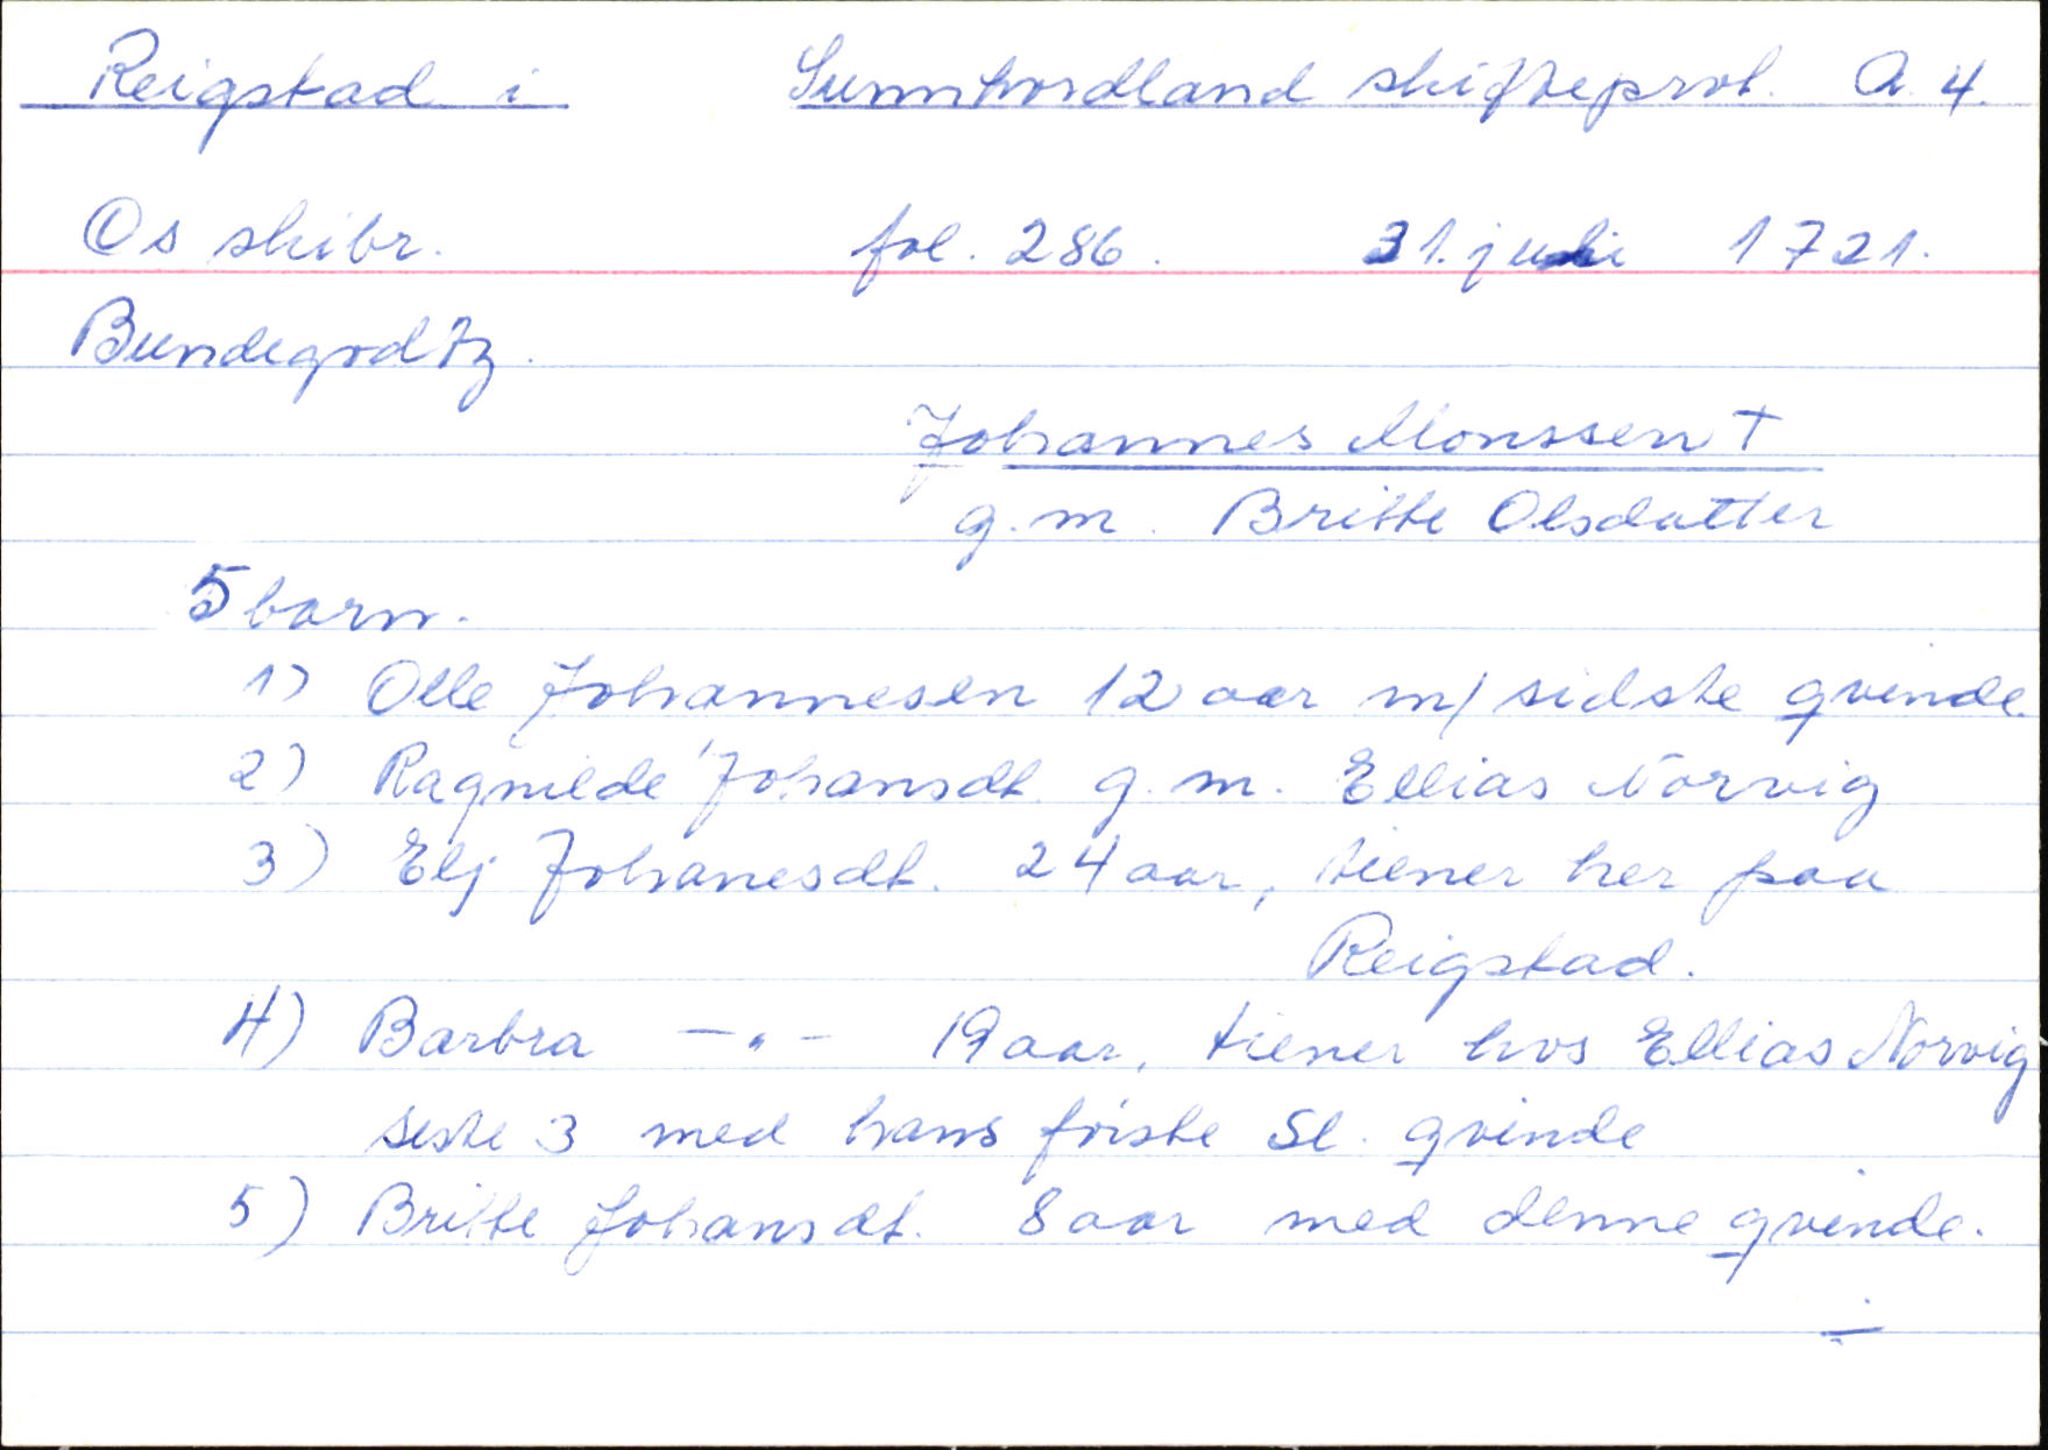 Reigstad i Sunnhordland skifteprot. A. 4.
Os skibr. fol. 286. 31. juli 1721.
Bundegodtz.
Johannes Monssen †
g. m. Britte Olsdatter
5 barn.
1) Olle Johannesen 12 aar m/ sidste qvinde.
2) Ragnilde Johansdt. g. m. Ellias Norvig
3) Elj Johanesdt. 24 aar, tiener her paa
Reigstad.
4) Barbra —„— 19 aar, tiener hos Ellias Norvig
seste 3 med hans føiste Sl. qvinde
5) Britte Johansdt. 8 aar med denne qvinde.